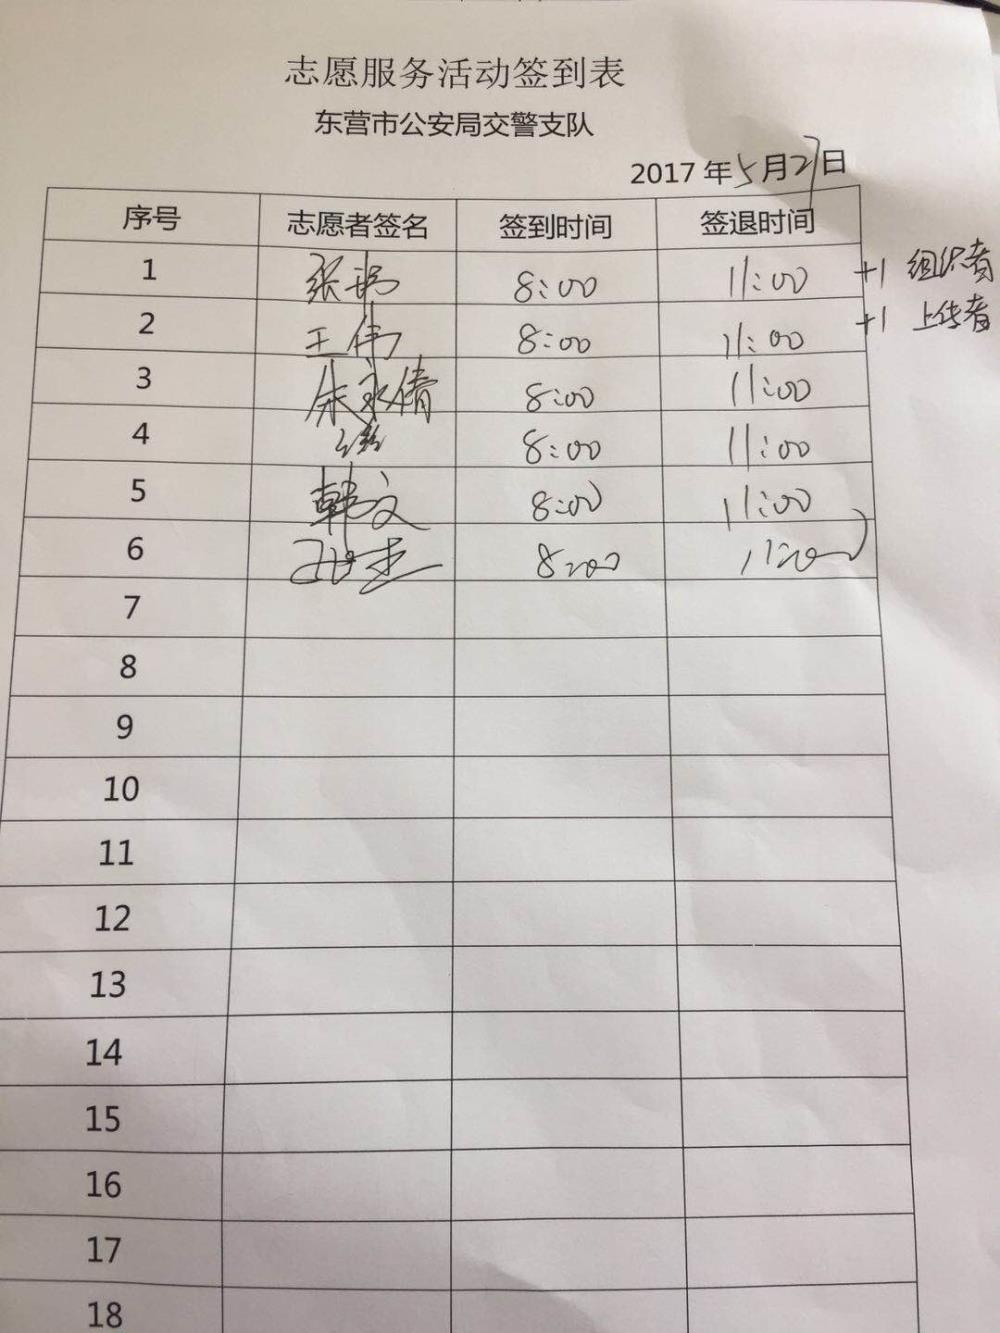 志愿服务活动签到表
东营市公安局交警支队
2017年5月27日
序号 志愿者签名 签到时间 签退时间
1 张 8:00 11:00 +1 组织者
2 王伟 8:00 11:00 +1 上传者
3 朱永倩 8:00 11:00
4 8:00 11:00
5 韩文 8:00 11:00
6 8:00 11:00
7
8
9
10
11
12
13
14
15
16
17
18